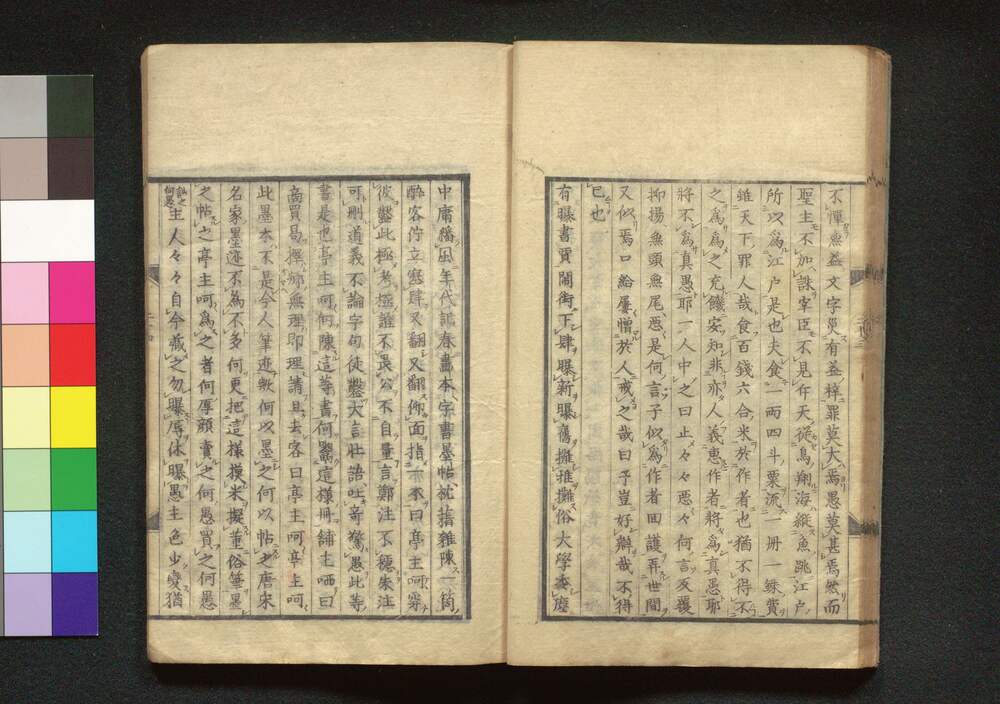 不憚無益文字災有益梓罪莫大焉愚莫甚焉然而
聖主不加誅宰臣不見仵天從鳥翔海縱魚跳江戶
所以為江戶是也夫食一兩四斗粟流一冊一緡費
雖天下罪人哉食百錢六合米於作者也猶不得不
之為為之充饑安知非亦人義惠作者將為真愚耶
將不為真愚耶一人中之曰止々々惡々何言反覆
抑揚魚頭魚尾惡是何言子似為作者回護弄世間
又似焉口給屢憎於人戒之哉曰予豈好辯哉不得
已也
有曝書賈開街下肆曝新曝舊攤雅攤俗大學塵
中庸播風年代記春畫本字書墨帖枕藉雜陳一箇
醉客佇立窓肆又翻又翻你面指示不曰亭主呵穿
彼鑿此極考極證不畏公不自量言鄭注不穩朱注
可刪道義不論字句徒鑿大言壯語吐奇驚愚此等
書是也亭主呵何陳這等書何鬻這樣冊舖主哂曰
商買易擇癖無理即理請且去客曰亭主呵亭主呵
此墨本不是今人筆迹歟何以墨之何以帖之唐宋
名家墨迹不為不多何更把這樣摸米擬董俗筆墨
之帖之亭主呵為之者何厚顏賣之何愚買之何愚
主人々々自今藏之勿曝辱休曝愚主色少變猶